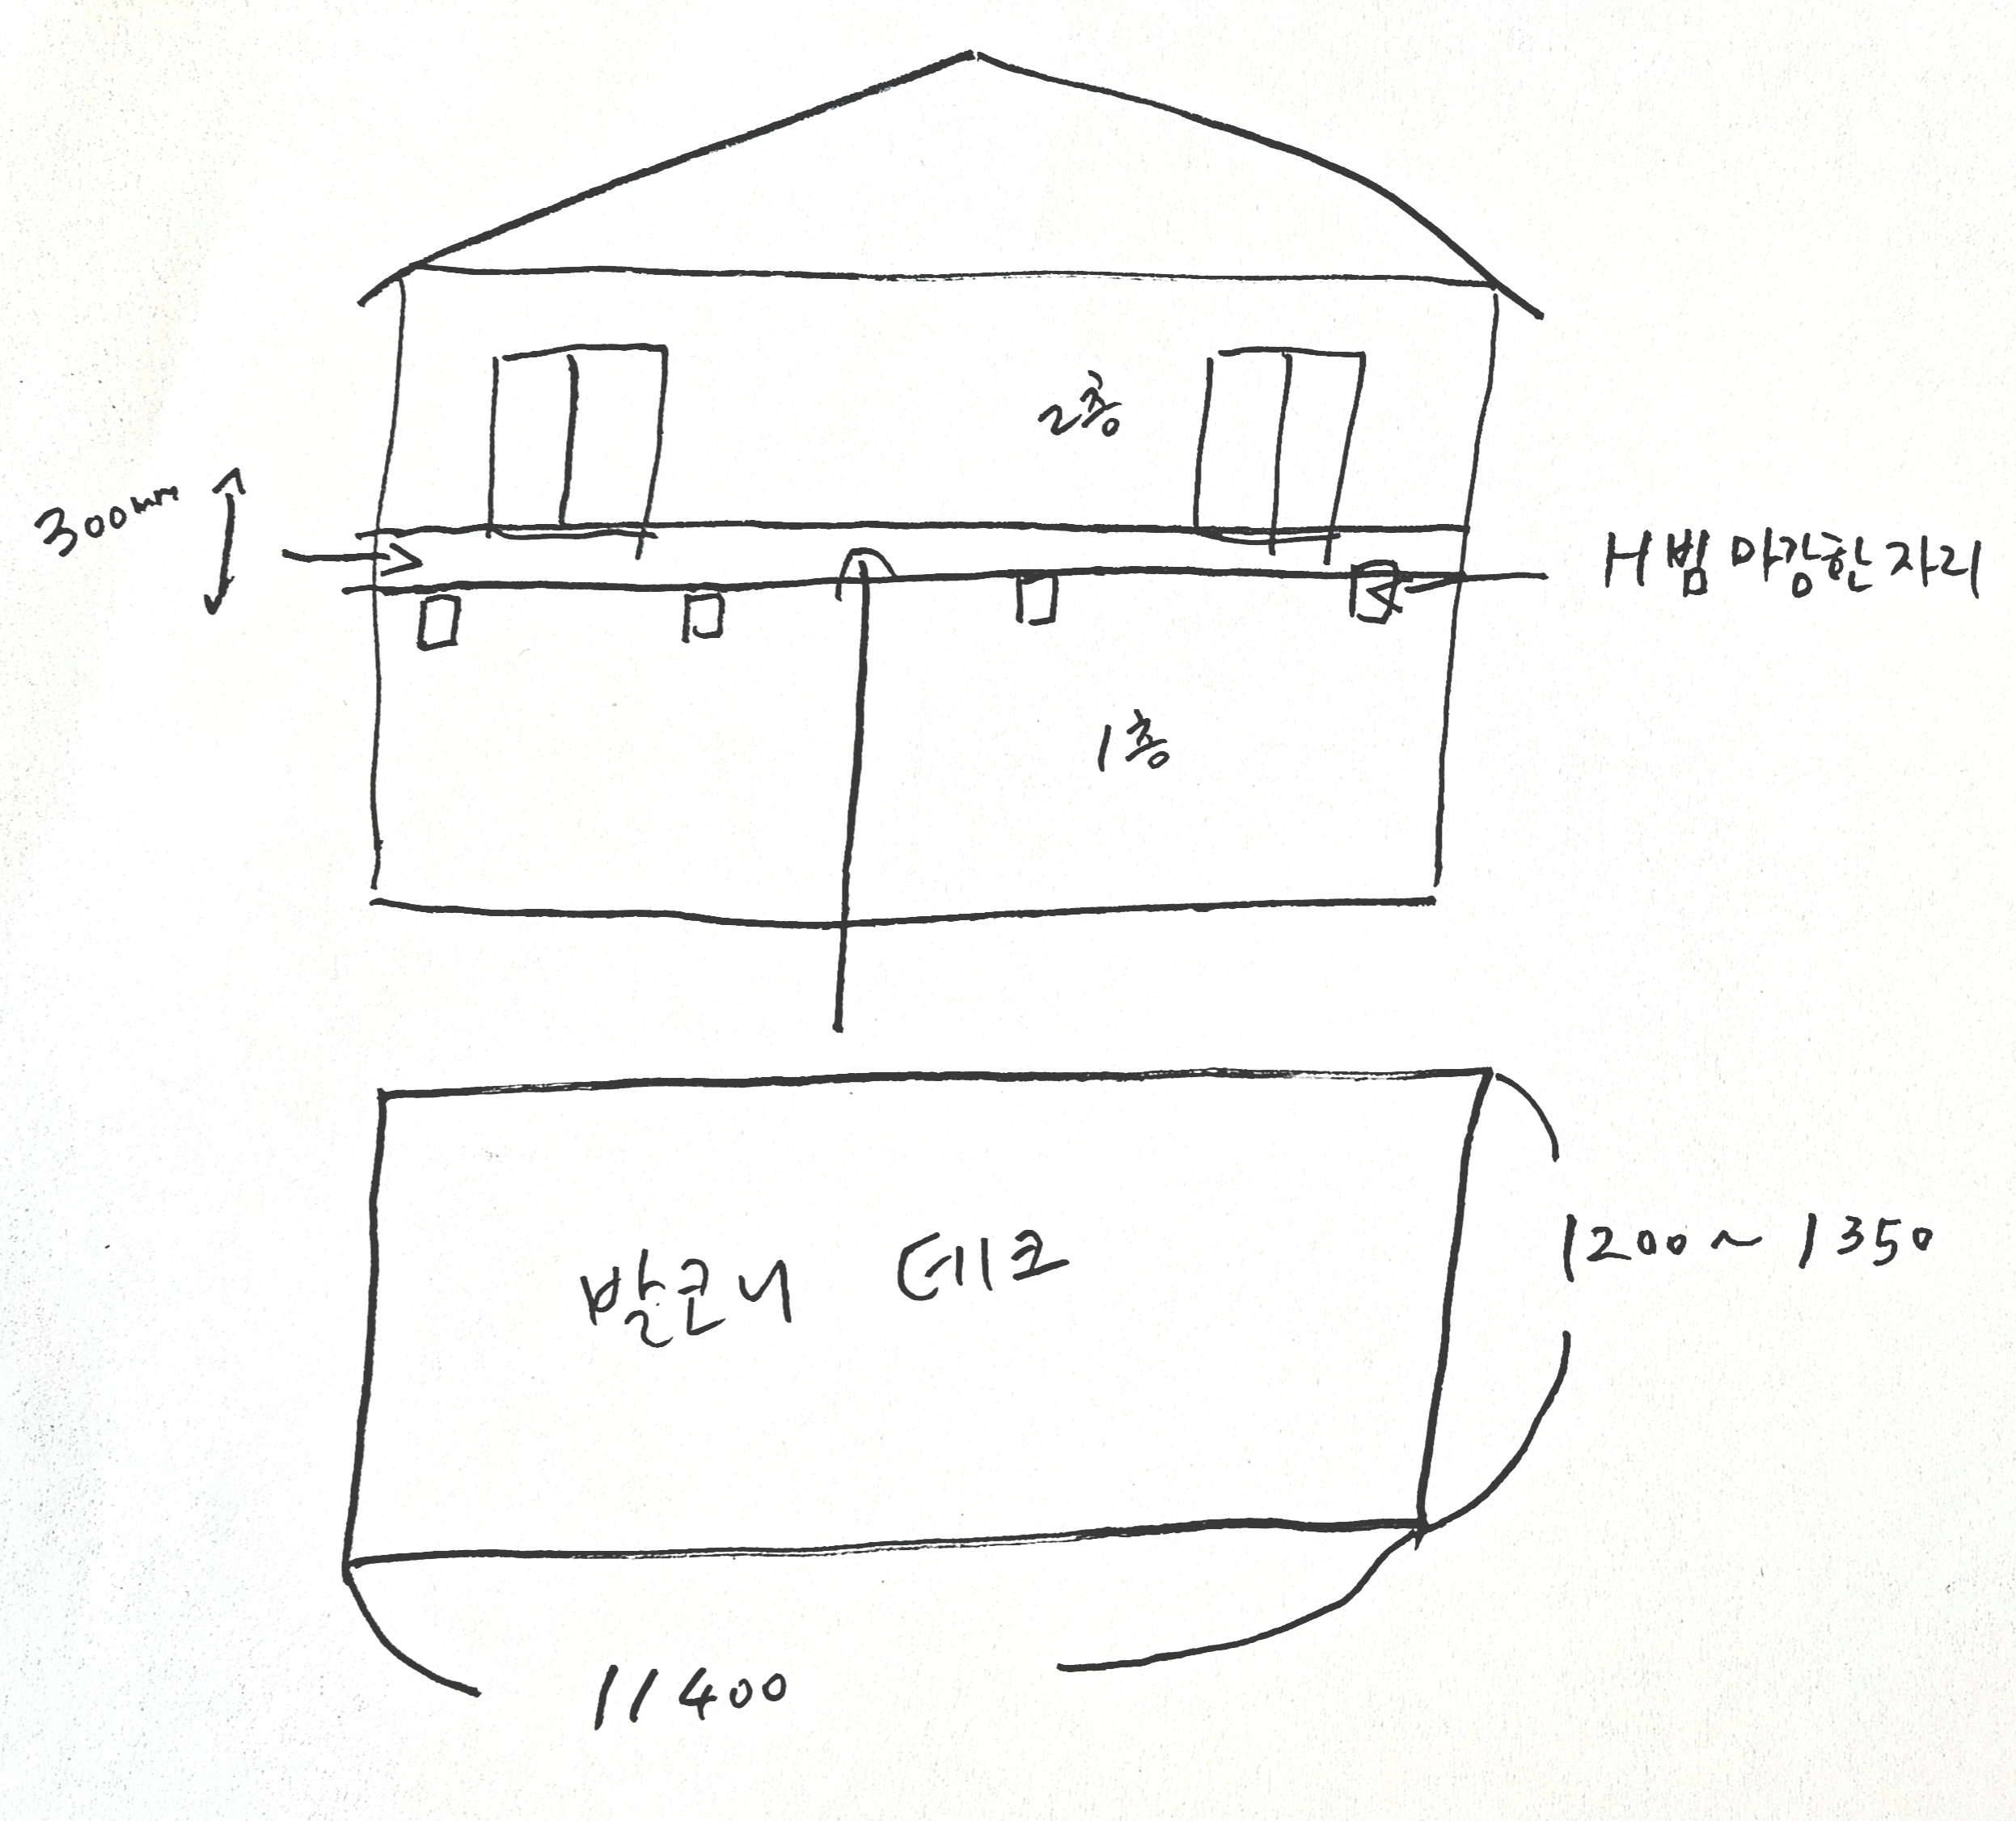 2층
300mm
H빔 마감한 자리
1층
발코니 데크
1200~1350
11400